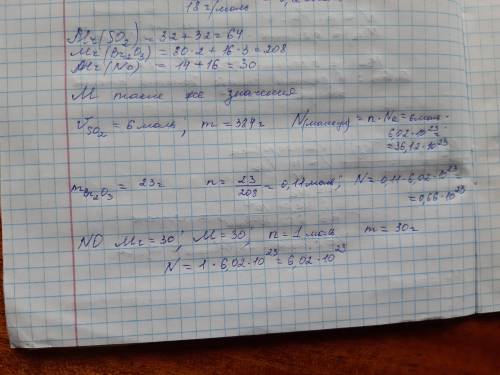 18 г/моль
Mr (SO₂) = 32 + 32 = 64
Mr (Br₂O₃) = 80·2 + 16·3 = 208
Mr (NO) = 14 + 16 = 30
M такие же значения
νSO₂ = 6 моль; m = 384 г N(молекул) = n·Na = 6 моль·
6,02·10²³ =
= 36,12·10²³
mBr₂O₃ = 23 г n = 23/208 = 0,11 моль; N = 0,11·6,02·10²³ =
= 0,66·10²³
NO Mr = 30; M = 30; n = 1 моль m = 30 г
N = 1·6,02·10²³ = 6,02·10²³